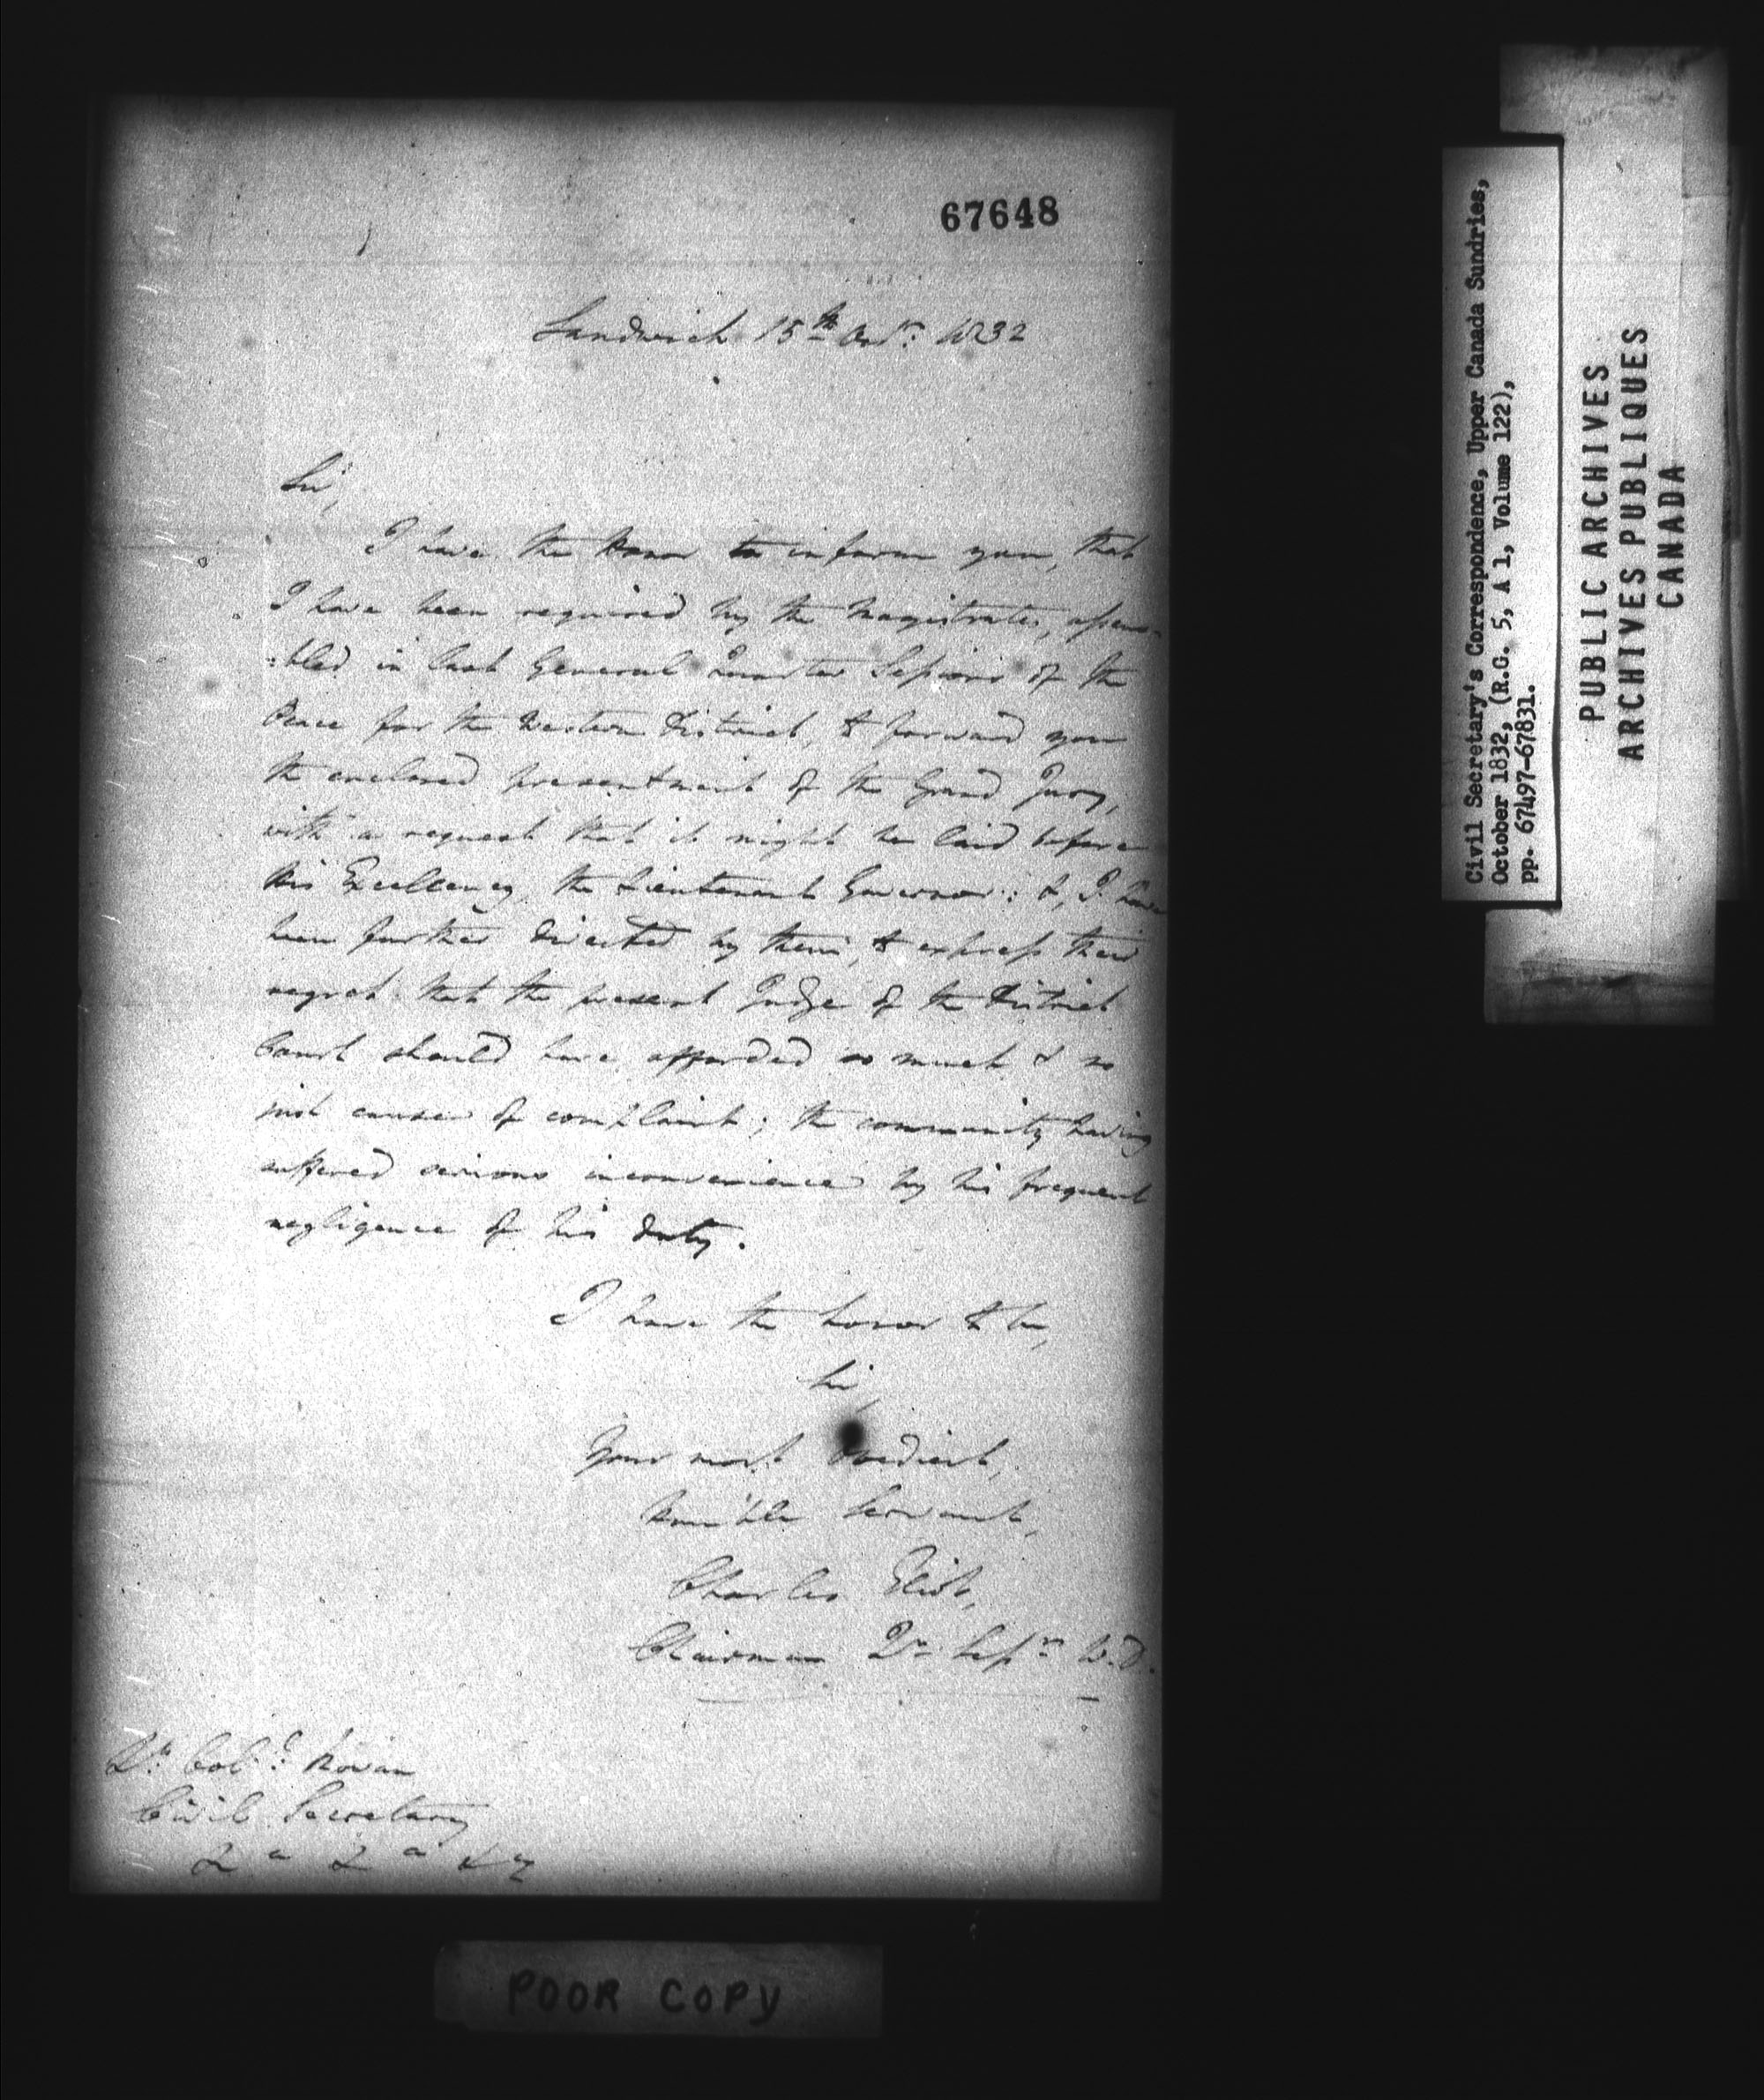 67648
Sandwich 15th Octr. 1832
Sir,
I have the honor to inform you, that
I have been required by the Magistrates, assem-
-bled in last General Quarter Sessions of the
Peace for the Western District, to forward you
the enclosed presentment of the Grand Jury,
with a request that it might be laid before
His Excellency, the Lieutenant Governor: &, I have
been further directed by them, to express their
regret that the present Judge of the District
Court should have afforded so much & so
just cause of complaint; the community having
suffered serious inconvenience by his frequent
negligence of his duty.
I have the honor to be,
Sir,
Your most obedient,
humble Servant,
Charles Eliot,
Chairman Qr. Sessns. W.D.
Lt. Coll. Rowan
Civil Secretary
&a &a &a
POOR COPY
Civil Secretary's Correspondence, Upper Canada Sundries,
October 1832, (R.G. 5, A 1, Volume 122),
pp. 67497-67831.
PUBLIC ARCHIVES
ARCHIVES PUBLIQUES
CANADA